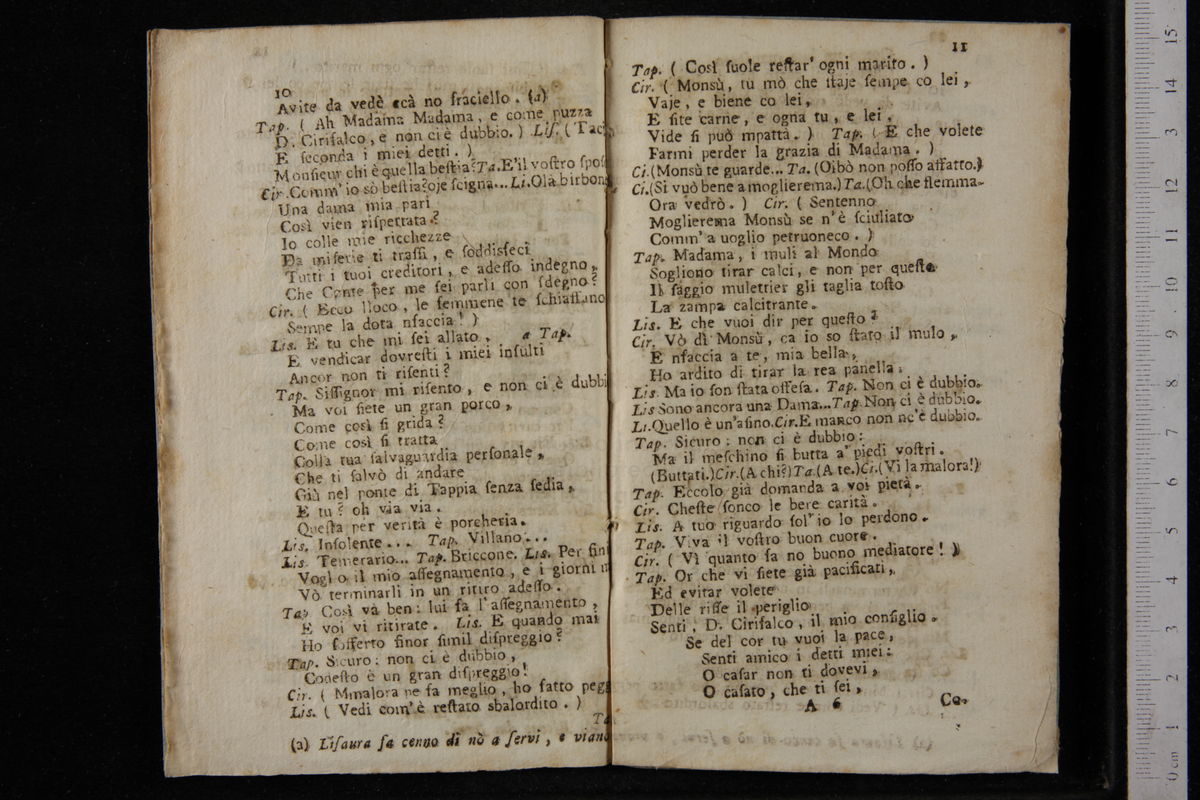 10
Avite da vedè ccà no fraciello. (a)
Tap. ( Ah Madama Madama, e come puzza
D. Cirifalco, e non ci è dubbio. ) Lis. ( Taci
E seconda i miei detti. )
Monsieur chi è quella bestia? Ta. E'il vostro spos
Cir. Comm' io sò bestia? oje scigna... Li. Olà birbon
Una dama mia pari
Così vien rispettata?
Io colle mie ricchezze
Da miserie ti trassi, e soddisfeci
Tutti i tuoi creditori, e adesso indegno,
Che Conte per me sei parli con sdegno?
Cir. ( Ecco lloco, le femmene te schiaffano
Sempe la dota nfaccia! )
Lis. E tu che mi sei allato, a Tap.
E vendicar dovresti i miei insulti
Ancor non ti risenti?
Tap. Sissignor mi risento, e non ci è dubbi
Ma voi siete un gran porco,
Come così si grida?
Come così si tratta
Colla tua salvaguardia personale,
Che ti salvò di andare
Giù nel ponte di Tappia senza sedia,
E tu? oh via via.
Questa per verità è porcheria.
Lis. Insolente... Tap. Villano...
Lis. Temerario... Tap. Briccone. Lis. Per fin
Voglio il mio assegnamento, e i giorni m
Vò terminarli in un ritiro adesso.
Tap. Così và ben: lui fa l'assegnamento,
E voi vi ritirate. Lis. E quando mai
Ho sofferto finor simil dispreggio?
Tap. Sicuro: non ci è dubbio,
Codesto è un gran dispreggio!
Cir. ( Mmalora pe fa meglio, ho fatto pegg
Lis. ( Vedi com'è restato sbalordito. )
Ta
(a) Lisaura fa cenno di nò a servi, e viano
11
Tap. ( Così suole restar' ogni marito. )
Cir. ( Monsù, tu mò che staje sempe co lei,
Vaje, e biene co lei,
E site carne, e ogna tu, e lei,
Vide si può mpatta. ) Tap. ( E che volete
Farmi perder la grazia di Madama. )
Ci. (Monsù te guarde... Ta. (Oibò non posso affatto.)
Ci. (Si vuò bene a moglierema.) Ta. (Oh che flemma.
Ora vedrò. ) Cir. ( Sentenno
Moglierema Monsù se n'è sciuliato
Comm' a uoglio petruoneco. )
Tap. Madama, i muli al Mondo
Sogliono tirar calci, e non per questo
Il saggio mulettier gli taglia tosto
La zampa calcitrante.
Lis. E che vuoi dir per questo?
Cir. Vò dì Monsù, ca io so stato il mulo,
E nfaccia a te, mia bella,
Ho ardito di tirar la rea panella.
Lis. Ma io son stata offesa. Tap. Non ci è dubbio.
Lis Sono ancora una Dama... Tap. Non ci è dubbio.
Li. Quello è un'asino. Cir. E manco non nc'è dubbio.
Tap. Sicuro: non ci è dubbio:
Ma il meschino si butta a' piedi vostri.
(Buttati.) Cir. (A chi?) Ta. (A te.) Ci. (Vi la malora!)
Tap. Eccolo già domanda a voi pietà.
Cir. Cheste sonco le bere carità.
Lis. A tuo riguardo sol' io lo perdono.
Tap. Viva il vostro buon cuore.
Cir. ( Vì quanto fa no buono mediatore! )
Tap. Or che vi siete già pacificati,
Ed evitar volete
Delle risse il periglio
Senti, D. Cirifalco, il mio consiglio.
Se del cor tu vuoi la pace,
Senti amico i detti miei:
O casar non ti dovevi,
O casato, che ti sei,
A 6 Co-